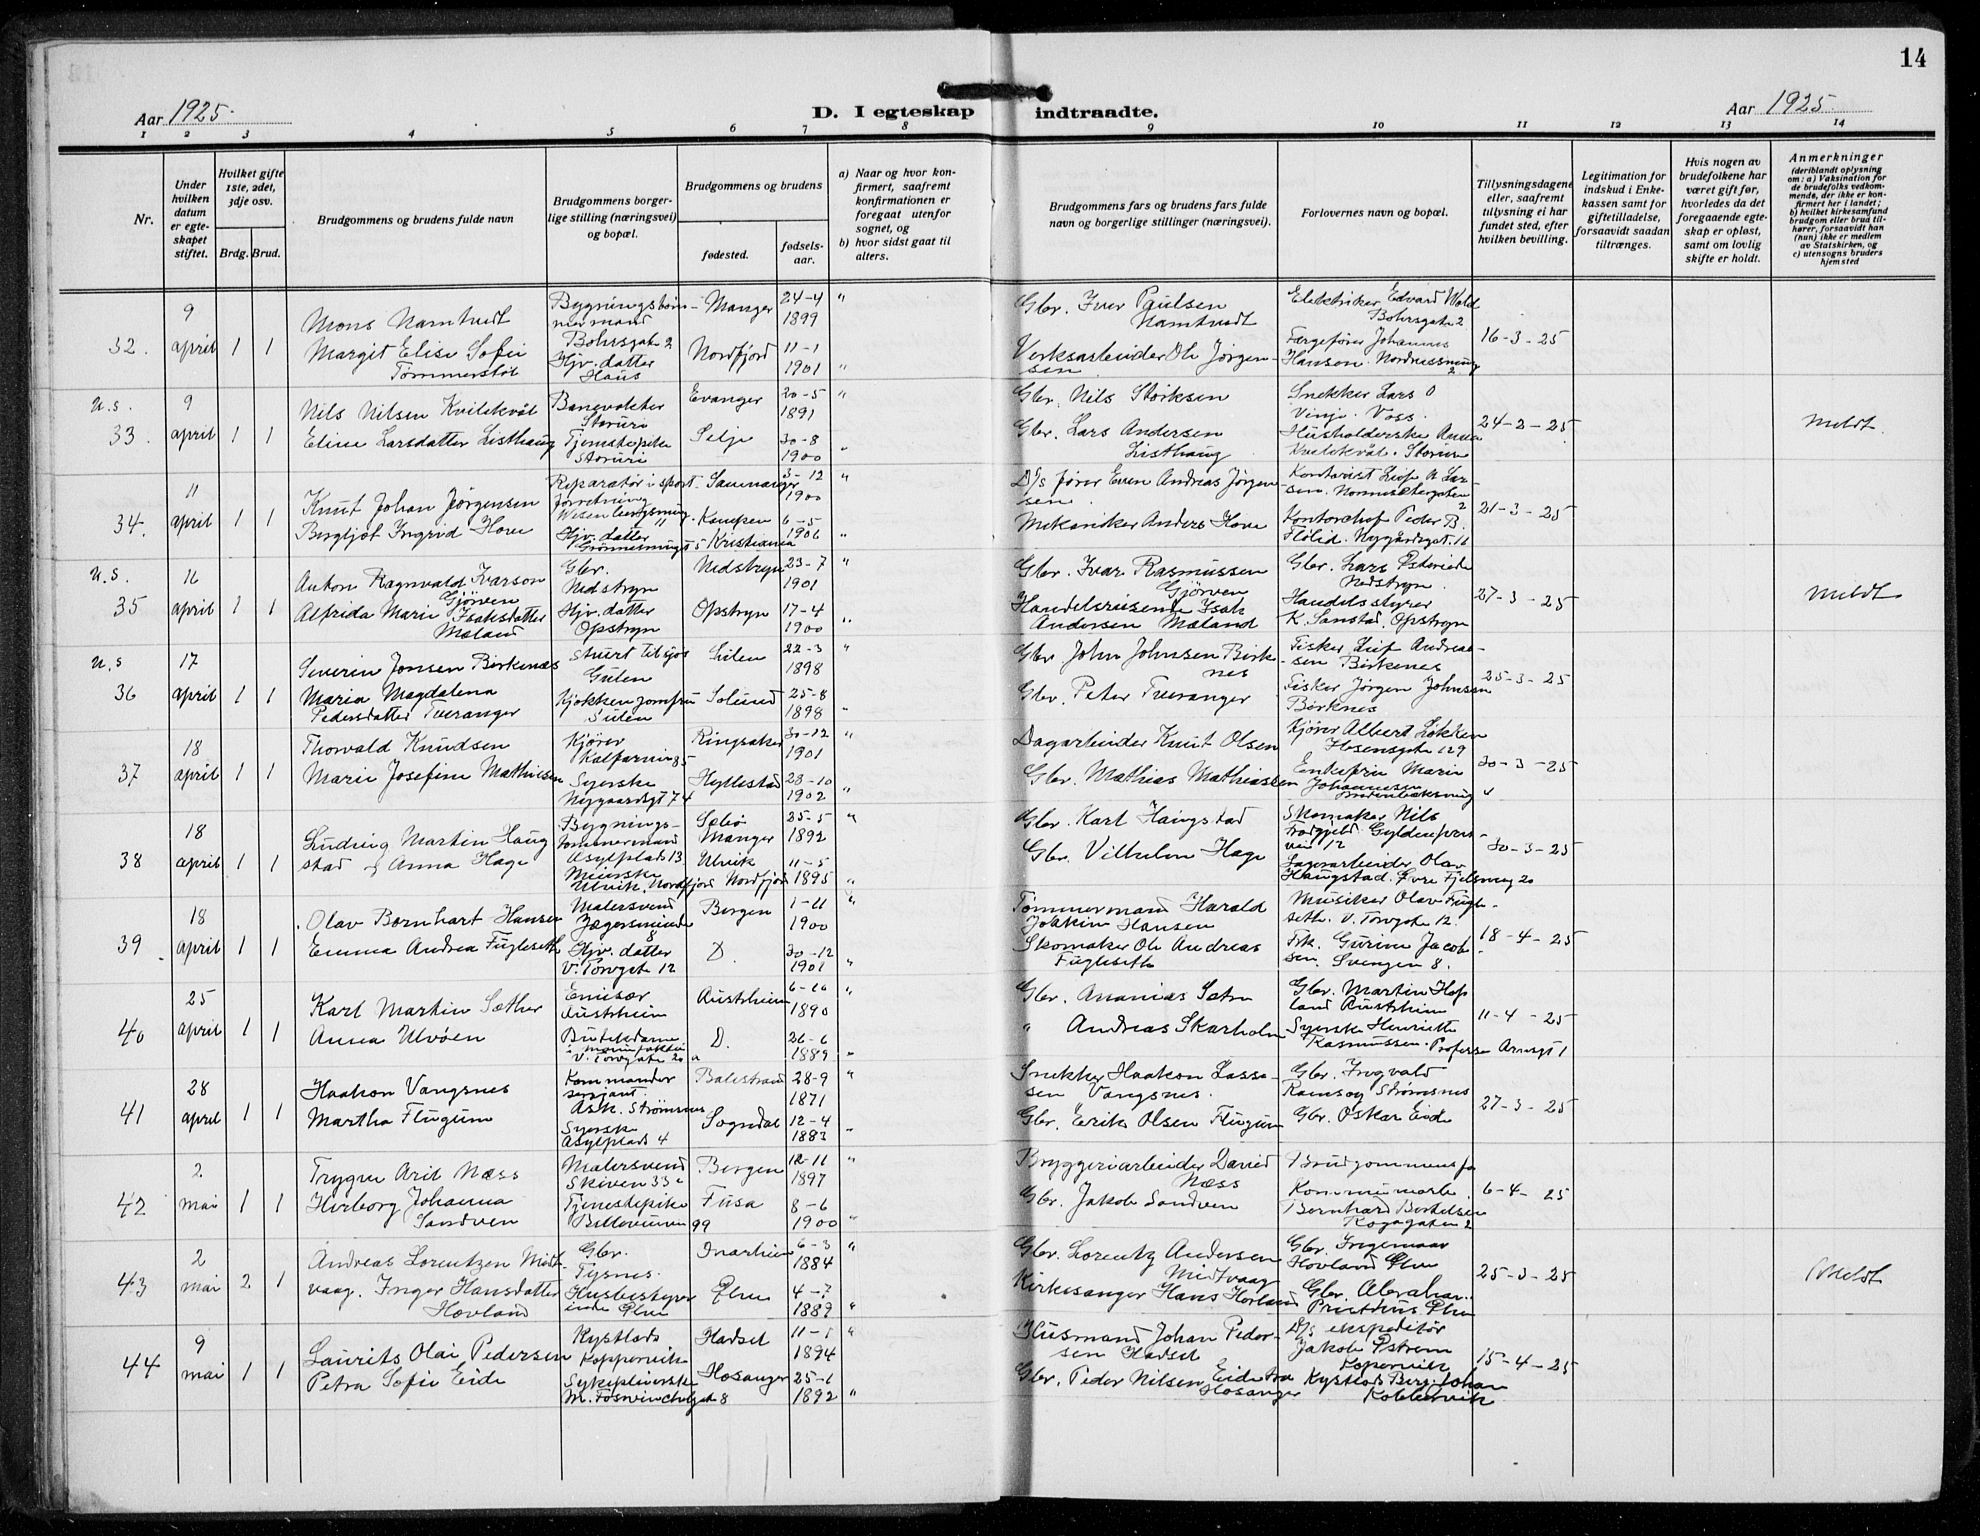 14
Aar 1925.
D. I egteskap indtraadte.
Aar 1925
1 2 3 4 5 6 7 8 9 10 11 12 13 14
Nr.
Under hvilken datum er egteskapet stiftet.
Hvilket gifte 1ste, 2det, 3dje osv.
Brdg. Brud.
Brudgommens og brudens fulde navn
Brudgommens borgerlige stilling (næringsvei) og bopæl.
Brudgommens og brudens
fødested.
fødselsaar.
a) Naar og hvor konfirmert, saafremt konfirmationen er foregaat utenfor sognet, og
b) hvor sidst gaat til alters.
Brudgommens fars og brudens fars fulde navn og borgerlige stillinger (næringsvei).
Forlovernes navn og bopæl.
Tillysningsdagene eller, saafremt tillysning ei har fundet sted, efter hvilken bevilling.
Legitimation for indskud i Enkekassen samt for giftetilladelse, forsaavidt saadan tiltrænges.
Hvis nogen av brudefolkene har været gift før, hvorledes da det foregaaende egteskap er opløst, samt om lovlig skifte er holdt.
Anmerkninger
(deriblandt oplysning om: a) Vaksination for de brudefolks vedkommende, der ikke er konfirmert her i landet; b) hvilket kirkesamfund brudgom eller brud tilhører, forsaavidt han (hun) ikke er medlem av Statskirken, og c) utensogns bruders hjemsted
32. 9 april 1 1
Mons Namtvedt
Margit Elise Sofie
Tømmerstøl
Bygningstømmermand
Bohrsgate 2
Hjv. datter
Haus
Manger 24-4 1899 "
Nordfjord 11-1 1901 "
Gbr. Iver Paulsen
Namtvedt
Verksarbeider Ole Jørgensen
Elektriker Edvard Wold
Bohrsgate 2
Færgefører Johannes
Hansen. Nordnessmug 2
16-3-25
u.s. 33. 9 april 1 1
Nils Nilsen Kvilekvål
Eline Larsdatter Listhaug
Banevokter
Storuri
Tjenestepike
Storuri
Evanger 20-5 1891 "
Selje 30-8 1900 "
Gbr. Nils Størksen
Gbr. Lars Andersen
Listhaug
Snekker Lars O
Vinje. Voss.
Husholderske Anna
Kvilekvål. Storuri
24-2-25
Meldt.
34. 11 april 1 1
Knut Johan Jørgensen
Bergljot Ingrid Hove
Reparatør i sportforretning
11
Hjv. datter
5
Samnanger 3-12 1900 "
Kampen Kristiania 6-5 1906 "
D/s fører Even Andreas Jørgensen
Mekaniker Anders Hove
Kontorist Leif A Larsen.
2
Kontorchef Peder B.
Flølid. Nygårdsgt. 16
21-3-25
u.s. 35 16 april 1 1
Anton Ragnvald Ivarson
Gjörven
Alfrida Marie Isaksdatter
Mæland
Gbr.
Nedstryn
Hjv. datter
Opstryn
Nedstryn 23-7 1901 "
Opstryn 17-4 1900 "
Gbr. Ivar Rasmussen
Gjörven
Handelsreisende Isak
Andersen Mæland
Gbr. Lars
Nedstryn
Handelsstyrer
K. Sanstad. Opstryn
27-3-25
Meldt
u.s 36 17 april 1 1
Severin Jonsen Birkenæs
Maria Magdalena
Pedersdatter Tveranger
Stuert tilsjøs
Gulen
Kjøkkenjomfru
Sulen
22-3 1898 "
Solund 25-8 1898 "
Gbr John Johnsen Birknes
Gbr. Peter Tveranger
Fisker Leif Andreassen
Birkenes
Fisker Jørgen Johnsen
Birknes
25-3-25
37 18 april 1 1
Thorvald Knudsen
Marie Josefine Mathiesen
Kjører
Kalfarvei 85
Syerske
Nygaardsgt 74
Ringsaker 30-12 1901 "
Hyllestad 23-10 1902 "
Dagarbeider Knut Olsen
Gbr. Mathias Mathiassen
Kjører Albert Løkken
129
Enkefru Marie
Johannesen
30-3-25
38 18 april 1 1
Ludvig Martin Haugstad
Anna Hage
Bygningstømmermand
Asylplads 13
Meierske
Ulvik. Nordfjord
Sæbø Manger 25-5 1892 "
Ulvik Nordfjord 11-5 1895 "
Gbr. Karl Haugstad
Gbr. Vilhelm Hage
Skomaker Nils
12
Lagerarbeider Olav
Haugstad. Øvre Fjelsmug 20
30-3-25
39. 18 april 1 1
Olav Bernhart Hansen
Emma Andrea Fugleseth
Malersvend
8
Hjv. datter
V. Torvgate 12
Bergen 1-11 1900 "
D. 30-12 1901 "
Tømmermand Harald
Joakim Hansen
Skomaker Ole Andreas
Fugleseth
Musiker Olav Fugleseth.
V. Torvgate 12.
Frk. Gurine Jacobsen.
Svengen 8.
18-4-25
40 25 april 1 1
Karl Martin Sæther
Anna Ulvöen
Emisær
Austrheim
V. Torvgate 20 a
Austrheim 6-10 1890 "
D. 26-6 1889 "
Gbr. Ananias Sætre
" Andreas Skarholm
Gbr. Martin Hopland
Austrheim
Syerske Henriette
Rasmussen. Professor 1
11-4-25
41 28 april 1 1
Haakon Vangsnes
Martha Flugum
Kommandersersjant.
Ask. Strømsnes
Syerske
Asylplads 4
Balestrand 28-9 1871 "
Sogndal 12-4 1883 "
Snekker Haakon Lassesen
Vangsnes.
Gbr. Erik Olsen Flugum
Gbr.
Strømsnes
Gbr. Oskar Eide
27-3-25
42 2 mai 1 1
Trygve Arit Næss
Herborg Johanna
Sandven
Malersvend
Skiven 33
Tjenestepike
99
Bergen 12-11 1897 "
Fusa 8-6 1900 "
Bryggeriarbeider David
Næss
Gbr. Jakob Sandven
Brudgommens fa
Bernhard Bertelsen
2
6-4-25
43 2 mai 2 1
Andreas Lorentzen Midtvaag.
Inger Hansdatter
Hovland
Gbr.
Tysnes.
Husbestyrerinde
6-3 1884 "
4-7 1889 "
Gbr. Lorentz Andersen
Midtvaag
Kirkesanger Hans Hovland
Gbr. Ingemaar
Hovland
Gbr. Abraham
25-3-25
Meldt
44 9 mai 1 1
Laurits Olai Pedersen
Petra Sofie Eide
Kystlods
Koppervik
Sykepleierske
8
Hadsel 11-1 1894 "
Hosanger 25-1 1892 "
Husmand Johan Pedersen
Hadsel
Gbr. Peder Nilsen Eide fra
Hosanger
D/s ekspeditør
Jakob Østrem
Kopervik
Kystlods Berg. Johan
15-4-25